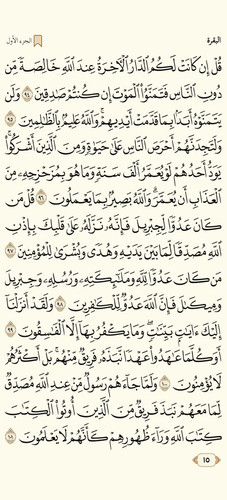 البقرة الجزء الأول
قُلْ إِن كَانَتْ لَكُمُ ٱلدَّارُ ٱلْأَخِرَةُ عِندَ ٱللَّهِ خَالِصَةً مِّن
دُونِ ٱلنَّاسِ فَتَمَنَّوُا۟ ٱلْمَوْتَ إِن كُنتُمْ صَٰدِقِينَ ٩٤ وَلَن
يَتَمَنَّوْهُ أَبَدًۢا بِمَا قَدَّمَتْ أَيْدِيهِمْ ۗ وَٱللَّهُ عَلِيمٌۢ بِٱلظَّٰلِمِينَ
٩٥ وَلَتَجِدَنَّهُمْ أَحْرَصَ ٱلنَّاسِ عَلَىٰ حَيَوٰةٍ وَمِنَ ٱلَّذِينَ أَشْرَكُوا۟ ۚ
يَوَدُّ أَحَدُهُمْ لَوْ يُعَمَّرُ أَلْفَ سَنَةٍ وَمَا هُوَ بِمُزَحْزِحِهِۦ مِنَ
ٱلْعَذَابِ أَن يُعَمَّرَ ۗ وَٱللَّهُ بَصِيرٌۢ بِمَا يَعْمَلُونَ ٩٦ قُلْ مَن
كَانَ عَدُوًّا لِّجِبْرِيلَ فَإِنَّهُۥ نَزَّلَهُۥ عَلَىٰ قَلْبِكَ بِإِذْنِ
ٱللَّهِ مُصَدِّقًا لِّمَا بَيْنَ يَدَيْهِ وَهُدًى وَبُشْرَىٰ لِلْمُؤْمِنِينَ ٩٧
مَن كَانَ عَدُوًّا لِّلَّهِ وَمَلَٰٓئِكَتِهِۦ وَرُسُلِهِۦ وَجِبْرِيلَ
وَمِيكَىٰلَ فَإِنَّ ٱللَّهَ عَدُوٌّ لِّلْكَٰفِرِينَ ٩٨ وَلَقَدْ أَنزَلْنَآ
إِلَيْكَ ءَايَٰتٍۭ بَيِّنَٰتٍ ۖ وَمَا يَكْفُرُ بِهَآ إِلَّا ٱلْفَٰسِقُونَ ٩٩
أَوَكُلَّمَا عَٰهَدُوا۟ عَهْدًا نَّبَذَهُۥ فَرِيقٌ مِّنْهُم ۚ بَلْ أَكْثَرُهُمْ
لَا يُؤْمِنُونَ ١٠٠ وَلَمَّا جَآءَهُمْ رَسُولٌ مِّنْ عِندِ ٱللَّهِ مُصَدِّقٌ
لِّمَا مَعَهُمْ نَبَذَ فَرِيقٌ مِّنَ ٱلَّذِينَ أُوتُوا۟ ٱلْكِتَٰبَ
كِتَٰبَ ٱللَّهِ وَرَآءَ ظُهُورِهِمْ كَأَنَّهُمْ لَا يَعْلَمُونَ ١٠١
١٥